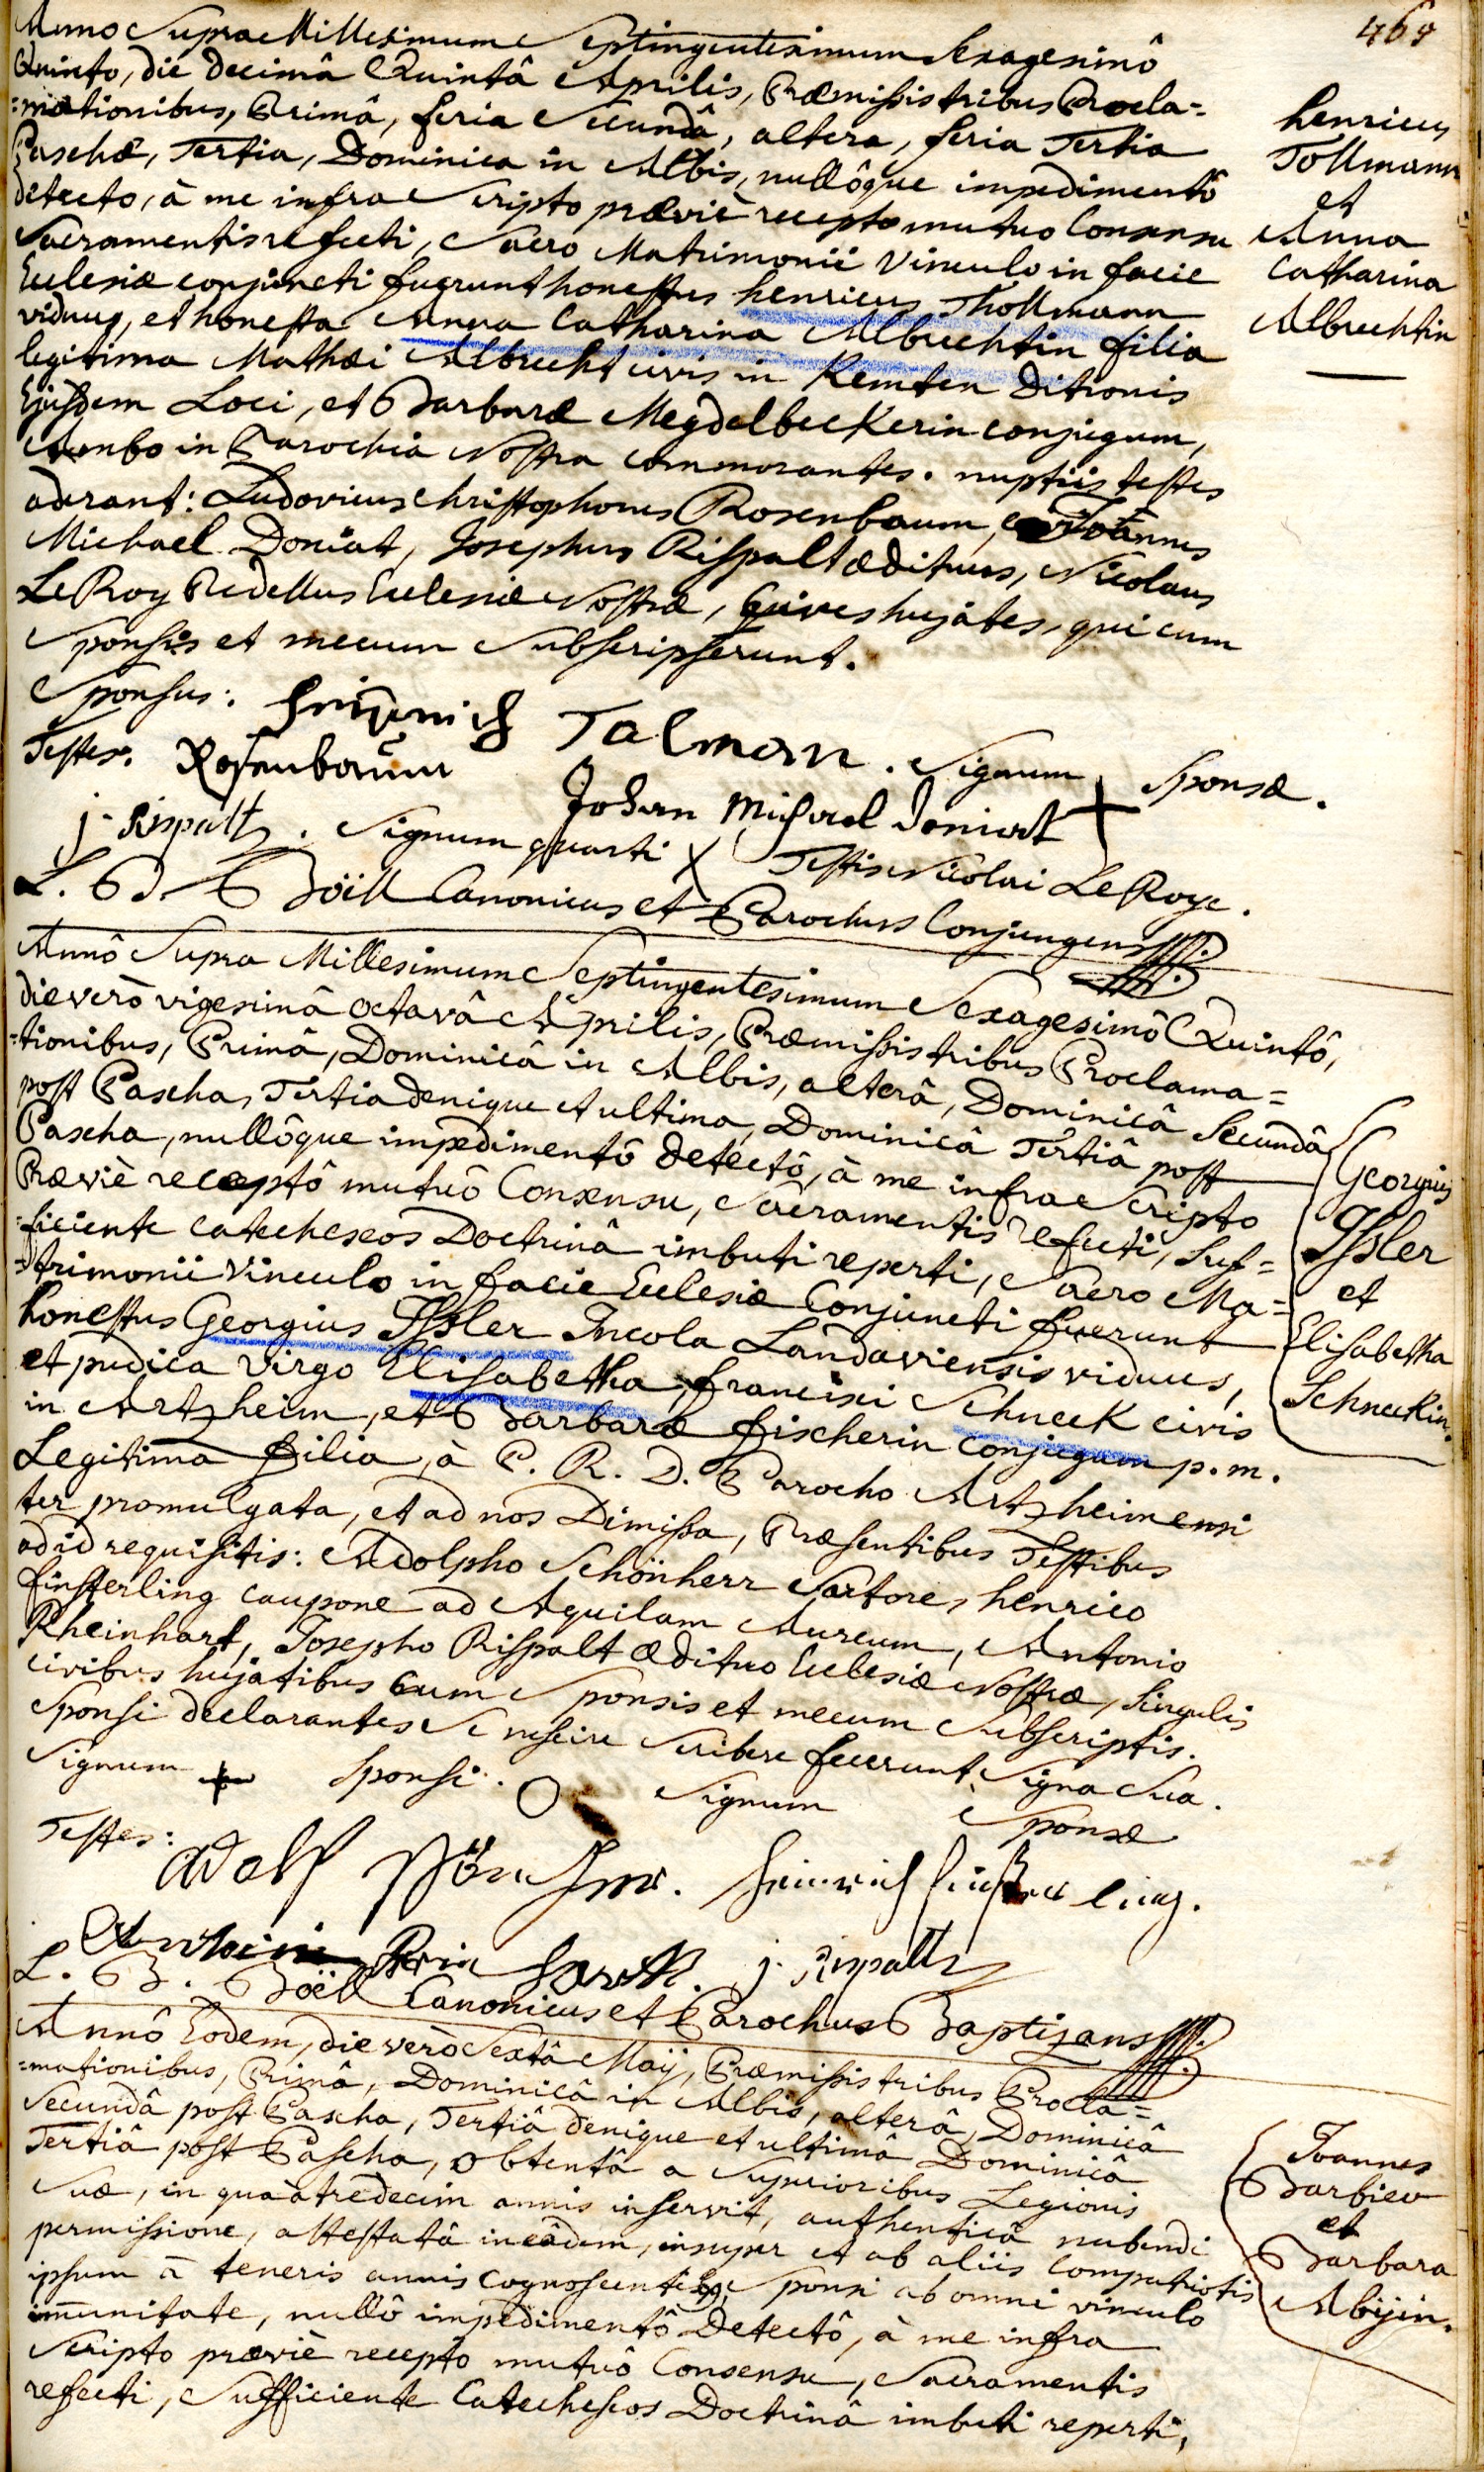 469
Anno Supra Millesimum Septingentesimum Sexagesimô
Quinto, die decimâ Quintâ Aprilis, Præmissis tribus Procla=
=mationibus, Primâ, feria Secundâ, altera, feria Tertia
Paschæ, Tertia, Dominica in Albis, nullôque impedimentô
detecto, à me infra Scripto præviè recepto mutuo Consensu
Sacramentis refecti, Sacro Matrimonii Vinculo in facie
Ecclesiæ conjuncti fuerunt honestus henricus Thollmann
viduus, et honesta Anna Catharina Albrechtin filia
legitima Mathæi Albrecht civis in Kemten Ditionis
Ejusdem Loci, et Barbaræ Megdelbeckerin conjugum,
Ambo in Parochia Nostra commorantes. nuptiis testes
aderant: Ludovicus Christophorus Rosenbaum, Joannes
Michael Doniat, Josephus Rispalt ædituus, Nicolaus
Le Roy Pedellus Ecclesiæ Nostræ, Cives hujates, qui cum
Sponsis et mecum Subscripserunt.
henricus
Tollmann
et
Anna
Catharina
Albrechtin
Sponsus: Heinrich Talman. Signum + Sponsæ.
Testes. Rosenbaum Johan Michael Doniat
j. Rispalt. Signum quarti X Testis Nicolai Le Roye.
L. B. Böill Canonicus et Parochus Conjungens
Annô Supra Millesimum Septingentesimum Sexagesimô Quintô,
die verò vigesimâ Octavâ Aprilis, Præmissis tribus Proclama=
=tionibus, Primâ, Dominicâ in Albis, alterâ, Dominicâ Secundâ
post Pascha, Tertia denique et ultima, Dominicâ Tertiâ post
Pascha, nullôque impedimentô detectô, à me infra Scripto
Præviè receptô mutuô Consensu, Sacramentis refecti, Suf=
=ficiente catecheseos Doctrinâ imbuti reperti, Sacro Ma=
=trimonii Vinculo in facie Ecclesiæ Conjuncti fuerunt
honestus Georgius Issler Incola Landaviensis viduus,
et pudica Virgo Elisabetha, francisci Schneck civis
in Artzheim, et Barbaræ fischerin conjugum p. m.
Legitima filia, à P. R. D. Parocho Artzheimensi
ter promulgata, et ad nos Dimissa, Præsentibus Testibus
ad id requisitis: Adolpho Schönherr Sartore, henrico
finsterling caupone ad Aquilam Auream, Antonio
Rheinhart, Josepho Rispalt ædituo Ecclesiæ Nostræ, Singulis
civibus hujatibus cum Sponsis et mecum Subscriptis.
Sponsi declarantes Se nescire Scribere fecerunt Signa Sua.
Georgius
Issler
et
Elisabetha
Schneckin.
Signum + Sponsi. O Signum Sponsæ
Testes:
Adolf Schönherr. Heinrich finsterling.
Anthoni Reinhart. j. Rispalt
L. B. Böell Canonicus et Parochus Baptizans
Annô Eodem, die verò Sextâ Maÿ, Præmissis tribus Procla=
=mationibus, Primâ, Dominicâ in Albis, alterâ, Dominicâ
Secundâ post Pascha, Tertiâ denique et ultimâ Dominicâ
Tertiâ post Pascha, Obtentâ a Superioribus Legionis
Suæ, in qua à tredecim annis inservit, authenticâ nubendi
permissione, attestatâ in eâdem, insuper et ab aliis Compatriotis
ipsum à teneris annis Cognoscentibus, Sponsi ab omni vinculo
immunitate, nullô impedimentô Detectô, à me infra
Scripto præviè recepto mutuô Consensu, Sacramentis
refecti, Sufficiente Catecheseos Doctrinâ imbuti reperti,
Joannes
Barbieu
et
Barbara
Abijin.